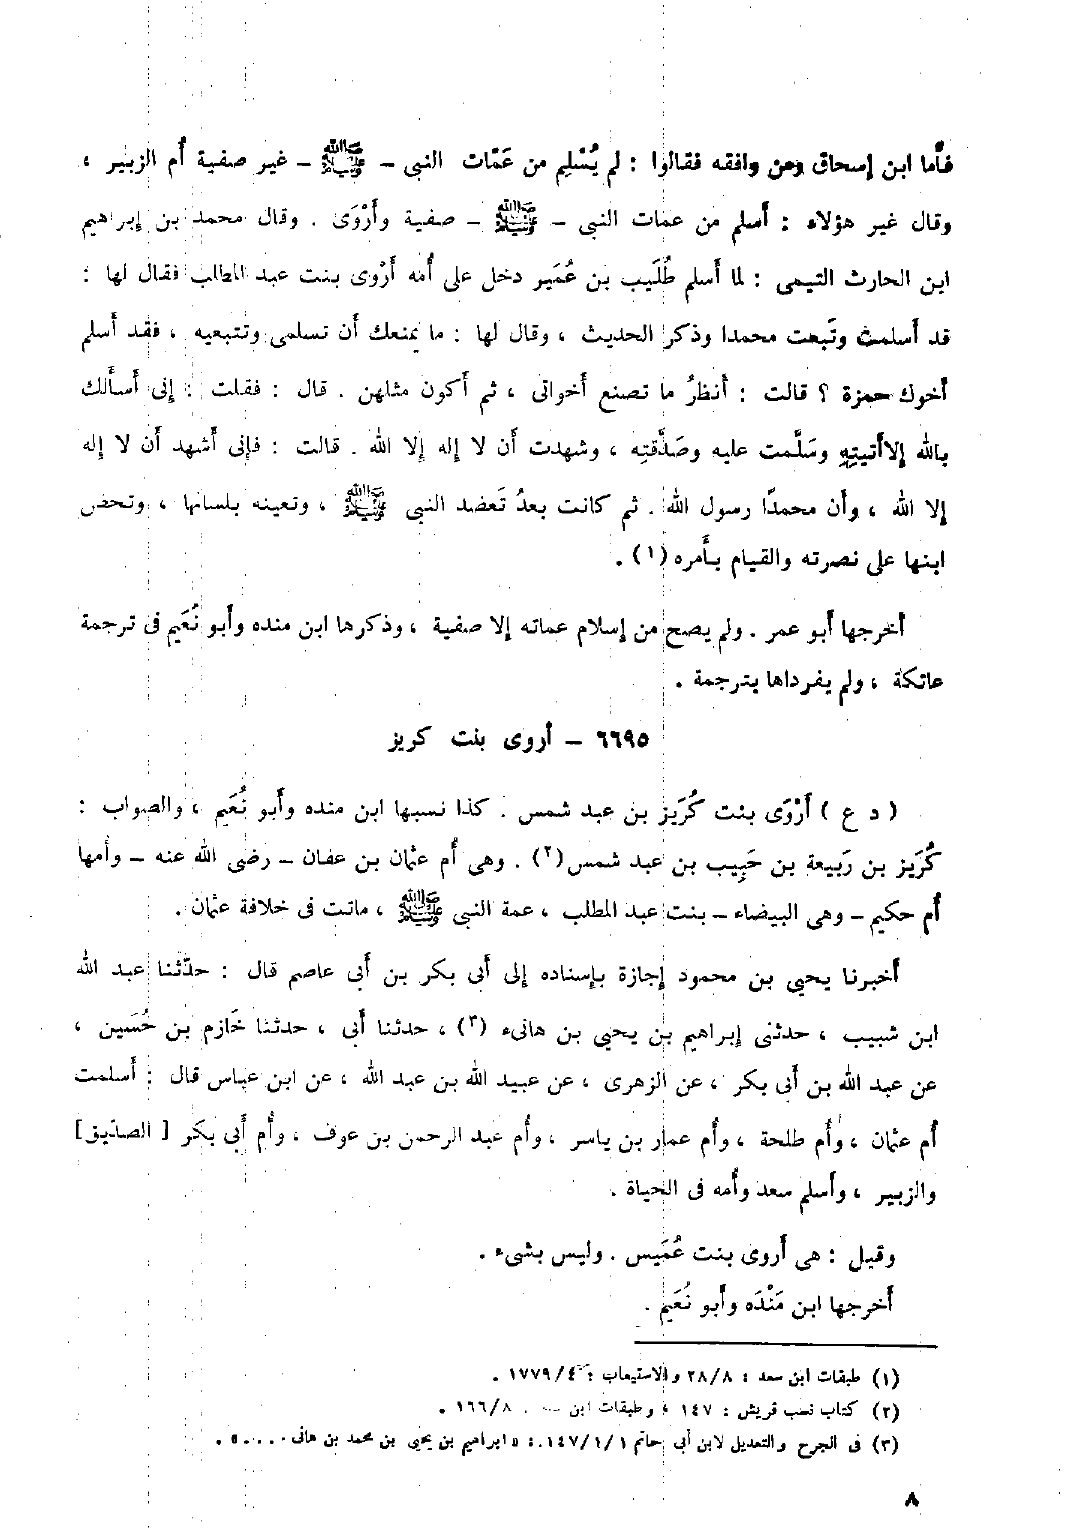 فأما ابن إسحاق ومن وافقه فقالوا : لم يُسْلِم من عَمَّات النبي – ﷺ – غير صفية أم الزبير ،
وقال غير هؤلاء : أسلم من عمات النبى – ﷺ – صفية وأَرْوَى . وقال محمد بن إبراهيم
ابن الحارث التيمى : لما أسلم طُلَيب بن عُمَير دخل على أُمه أَرْوى بنت عبد المطلب فقال لها :
قد أسلمتُ وتَبِعت محمدا وذكر الحديث ، وقال لها : ما يمنعك أن تسلمى وتتبعيه ، فقد أسلم
أخوك حمزة ؟ قالت : أنظرُ ما تصنع أخواتى ، ثم أكون مثلهن . قال : فقلت : إنى أسألك
بالله إلا أتيتِهِ وسَلَّمت عليه وصَدَّقتِه ، وشهدت أن لا إله إلا الله . قالت : فإنى أشهد أن لا إله
إلا الله ، وأن محمدًا رسول الله . ثم كانت بعدُ تَعضد النبى ﷺ ، وتعينه بلسانها ، وتحض
ابنها على نصرته والقيام بأمره (١) .
أخرجها أبو عمر . ولم يصح من إسلام عماته إلا صفية ، وذكرها ابن منده وأبو نُعَيم فى ترجمة
عاتكة ، ولم يفرداها بترجمة .
٦٦٩٥ – أروى بنت كريز
( د ع ) أَرْوَى بنت كُرَيز بن عبد شمس . كذا نسبها ابن منده وأبو نُعَيم ، والصواب :
كُرَيز بن رَبيعة بن حَبِيب بن عبد شمس (٢) . وهى أُم عثمان بن عفان – رضى الله عنه – وأمها
أم حكيم – وهى البيضاء – بنت عبد المطلب ، عمة النبى ﷺ ، ماتت فى خلافة عثمان .
أخبرنا يحيى بن محمود إجازة بإسناده إلى أبى بكر بن أبى عاصم قال : حدّثنا عبد الله
ابن شبيب ، حدثنى إبراهيم بن يحيى بن هانىء (٣) ، حدثنا أبى ، حدثنا خَازم بن حُسَين ،
عن عبد الله بن أبى بكر ، عن الزهرى ، عن عبيد الله بن عبد الله ، عن ابن عباس قال : أسلمت
أم عثمان ، وأُم طلحة ، وأم عمار بن ياسر ، وأُم عبد الرحمن بن عوف ، وأُم أبى بكر [ الصدّيق]
والزبير ، وأسلم سعد وأُمه فى الحياة .
وقيل : هى أروى بنت عُمَيس . وليس بشىء .
أخرجها ابن مَنْدَه وأبو نُعَيم .
(١) طبقات ابن سعد : ٢٨/٨ والاستيعاب : ١٧٧٩/٤ .
(٢) كتاب نسب قريش : ١٤٧ ، وطبقات ابن ١٦٦/٨ .
(٣) فى الجرح والتعديل لابن أبى حاتم ١٤٧/١/١ : « ابراهيم بن يحيى بن محمد بن هانى ..... » .
٨